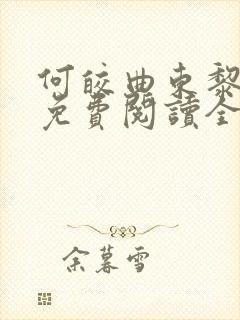 何皎曲東黎
免費閱讀全
余暮雪